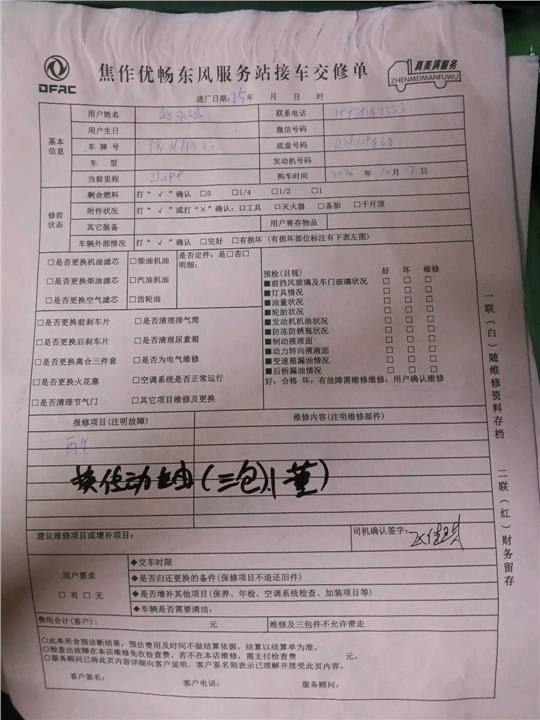 DFAC
焦作优畅东风服务站接车交修单
真美满服务
ZHENMEIMANFUWU
进厂日期:25年 月 日 时
基本信息
用户姓名 联系电话
用户生日 微信号码
车牌号 底盘号码
车型 发动机号码
当前里程 购车时间 年10月17日
修前状态
剩余燃料 打“√”确认 □0 □1/4 □1/2 □1
附件状况 打“√”或打“×”确认:□工具 □灭火器 □备胎 □千斤顶
其它装备 用户寄存物品
车辆外部情况 打“√”确认 □完好 □有损坏(有损坏部位标注有下表左图)
□是否更换机油滤芯 □柴油机油 是否定件:是□否□
明细:
□是否更换柴油滤芯 □汽油机油
□是否更换空气滤芯 □齿轮油
□是否更换前刹车片 □是否清理排气筒
□是否更换后刹车片 □是否清理尿素箱
□是否更换离合三件套 □是否为电气维修
□是否更换火花塞 □空调系统是否正常运行
□是否清理节气门 □其它项目维修及更换
预检(目视) 好 坏 维修
■前挡风玻璃及车门玻璃状况 □ □ □
■灯具情况 □ □ □
■油量状况 □ □ □
■轮胎状况 □ □ □
■发动机机油状况 □ □ □
■防冻防锈瓶状况 □ □ □
■制动液液面 □ □ □
■动力转向液液面 □ □ □
■变速箱漏油情况 □ □ □
■后桥漏油情况 □ □ □
好:合格 坏:有故障需维修维修:用户确认维修
报修项目(注明故障) 维修内容(注明维修部件)
换传动轴(三包)董
建议维修项目或增补项目: 司机确认签字:
用户要求
□有□无
◆交车时限
◆是否归还更换的备件(保修项目不退还旧件)
◆是否增补其他项目(保养、年检、空调系统检查、加装项目等)
◆车辆是否需要清洁:
费用合计(客户): 元 维修及三包件不允许带走
○此单所含预诊断结果,预估费用及时间不做结算依据,结算以结算单为准。
○检查出故障在本店维修免收检查费,若不在本店维修,需支付检查费 元。
○服务顾问已将此页内容详细向客户说明,客户签名则表示已理解并接受此页内容。
客户签名: 客户电话: 服务顾问:
一联(白)随维修资料存档 二联(红)财务留存